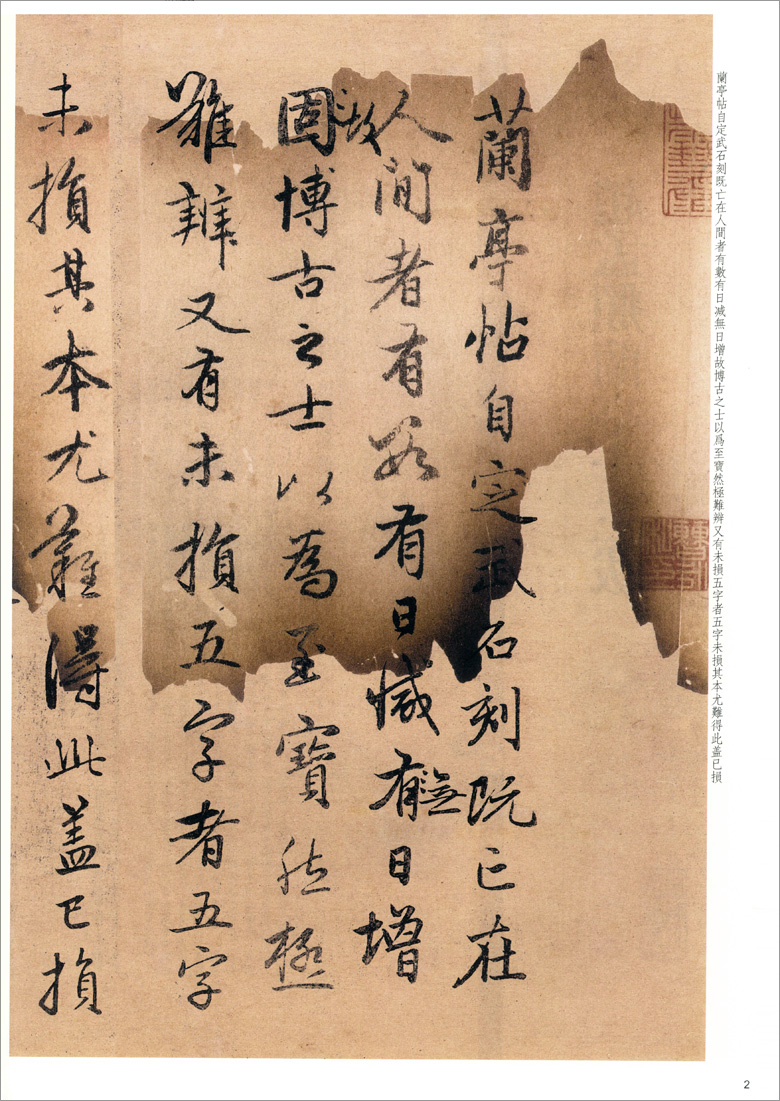 蘭亭帖自定武石刻既亡在人間者有數有日减無日增故博古之士以爲至寶然極難辨又有未損五字者五字未損其本尤難得此蓋已損
蘭亭帖自定武石刻既亡在
人間者有數有日減有無日增
固故博古之士以為至寶然極
難辨又有未損五字者五字
未損其本尤難得此盖已損
2